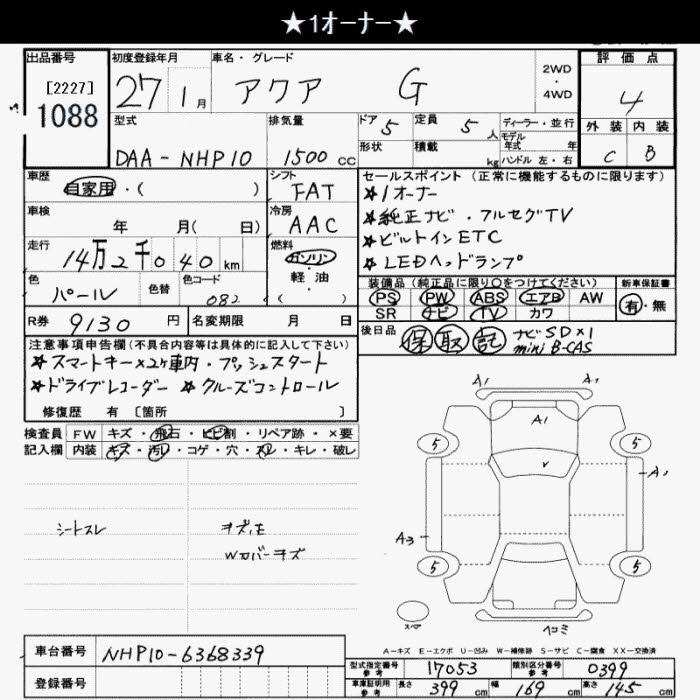 ★1オーナー★
出品番号 初度登録年月 車名・グレード 2WD・4WD 評価点
[2227]
1088
27 1月 アクア G 4
型式 排気量 ドア 5 定員 5人 ディーラー・並行 外装 内装
DAA-NHP10 1500cc 形状 積載 kg モデル年式 年 C B
ハンドル 左・右
車歴 シフト セールスポイント(正常に機能するものに限ります)
自家用・( ) FAT ★1オーナー
車検 冷房 ★純正ナビ・フルセグTV
年 月( 日) AAC ★ビルトインETC
走行 燃料 ★LEDヘッドランプ
14万2千040km ガソリン
軽・油
( )
色 色替 色コード 装備品(純正品に限り○をつけてください) 新車保証書
パール 082 PS PW ABS エアB AW 有・無
SR ナビ TV カワ
R券 9130円 名変期限 月 日 後日品 保 取 記 ナビSD×1
mini B-CAS
注意事項申告欄(不具合内容等は具体的に記入して下さい)
★スマートキー×2ヶ車内・プッシュスタート
★ドライブレコーダー ★クルーズコントロール
修復歴 有 [箇所 ]
検査員 FW キズ・飛石・ヒビ割・リペア跡・×要
記入欄 内装 キズ・汚レ・コゲ・穴・スレ・キレ・破レ
A1 A1
A1
5 5
V
A1
シートスレ
Wカバーキズ
A3
5 5
スペア ヘコミ
A-キズ E-エクボ U-凹み W-補修跡 S-サビ C-腐食 XX-交換済
車台番号 NHP10-6368339
型式指定番号 参考 17053 類別区分番号 参考 0399
登録番号
車庫証明用 参考 長さ 399cm 幅 169cm 高さ 145cm